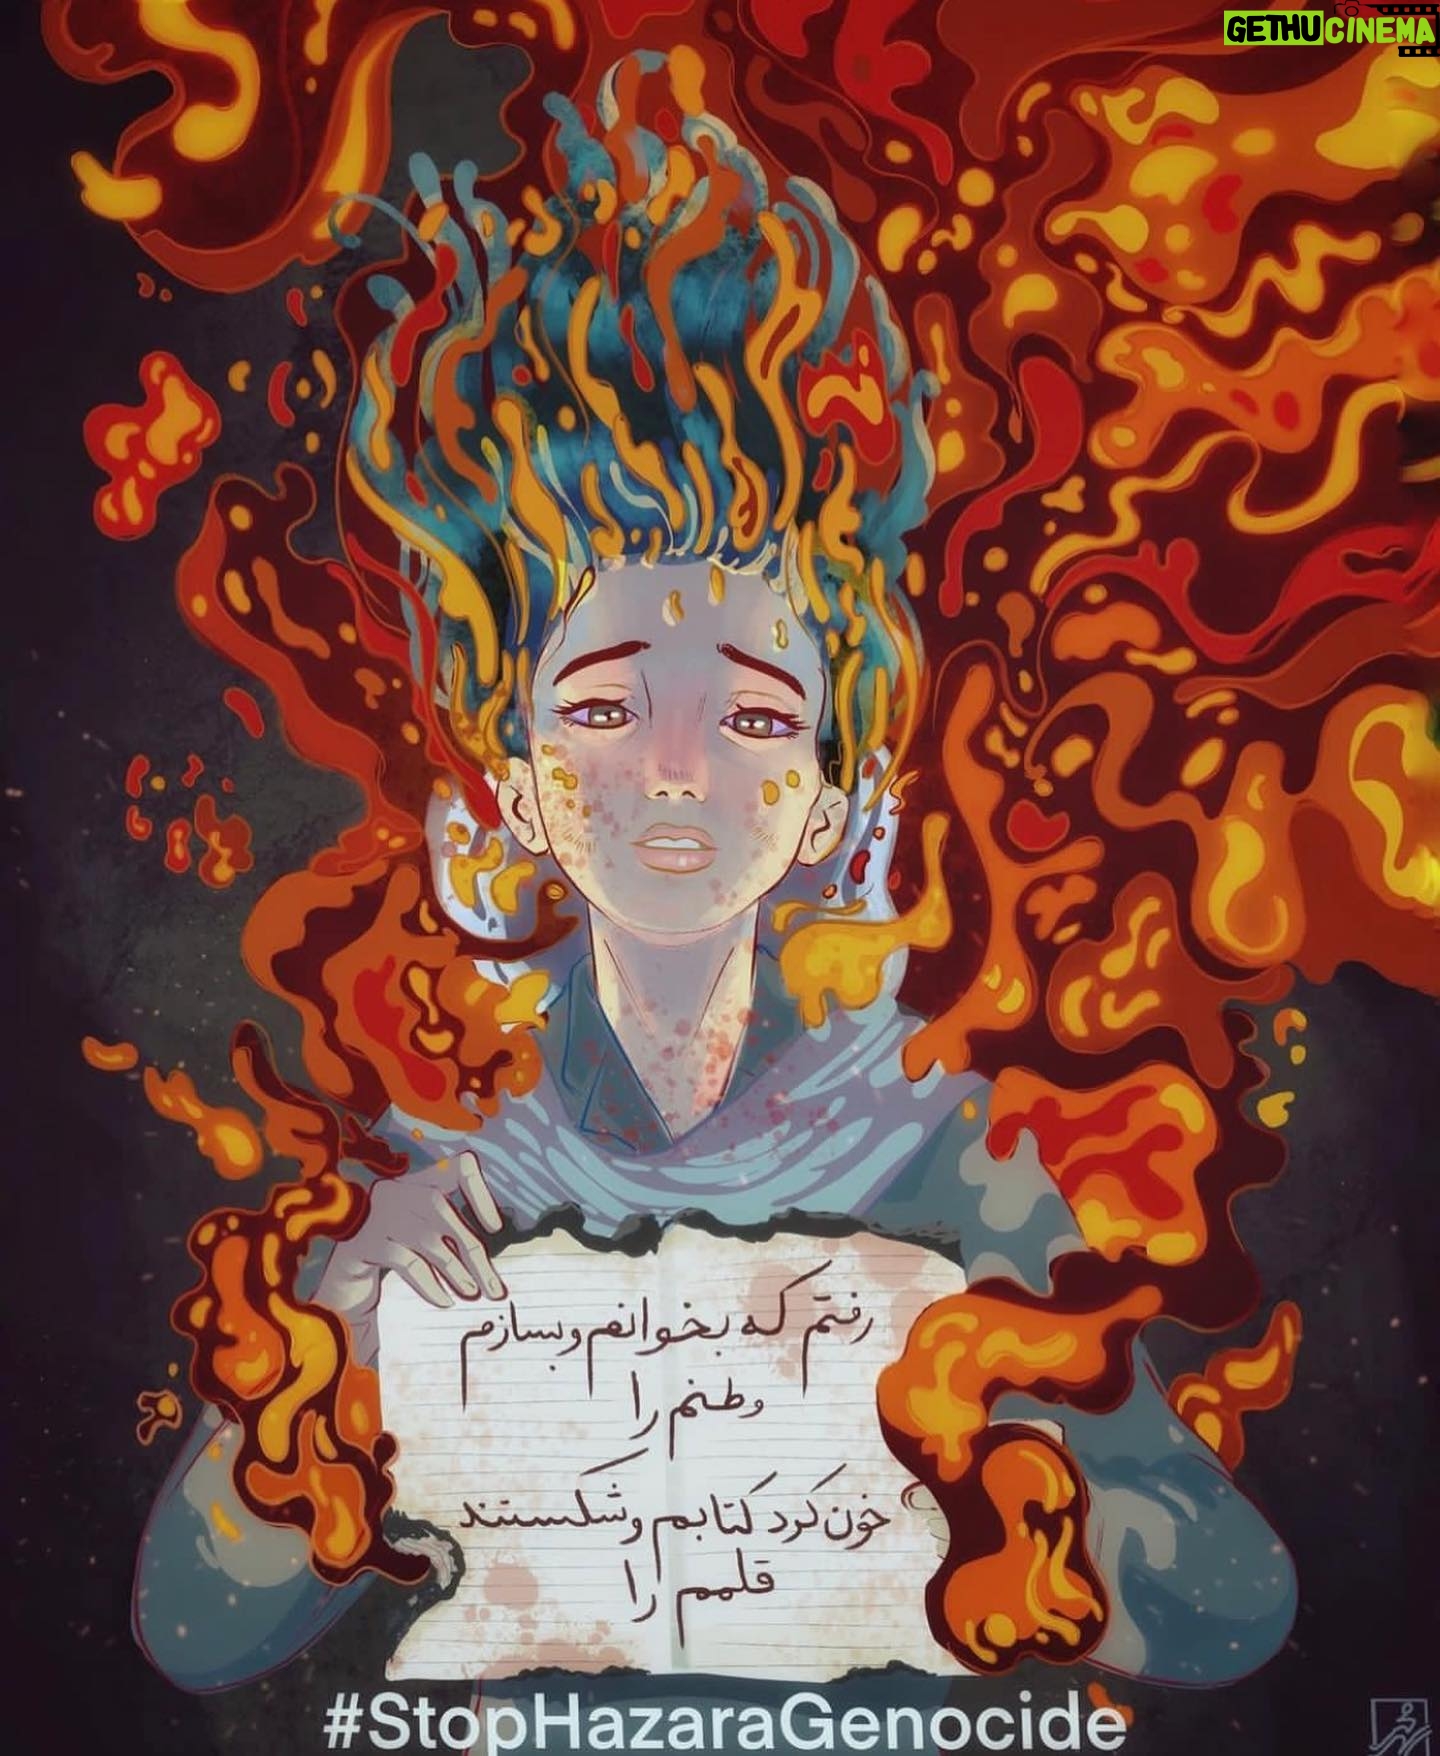 GETHUCINEMA
رفتم که بخوانم و بسازم
وطنم را
خون کرد کتابم و شکستند
قلمم را
#StopHazaraGenocide